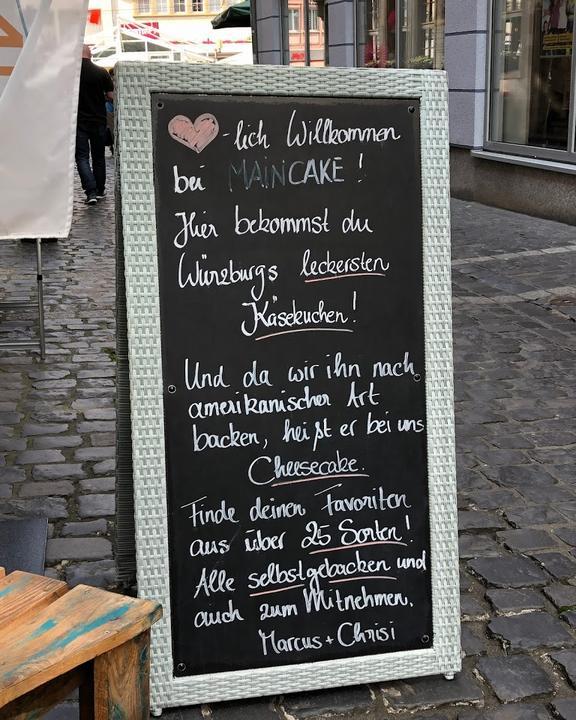 -lich Willkommen
bei MAINCAKE!
Hier bekommst du
Würzburgs leckersten
Käsekuchen!
Und da wir ihn nach
amerikanischer Art
backen, heißt er bei uns
Cheesecake.
Finde deinen Favoriten
aus über 25 Sorten!
Alle selbstgebacken und
auch zum Mitnehmen.
Marcus + Chrisi